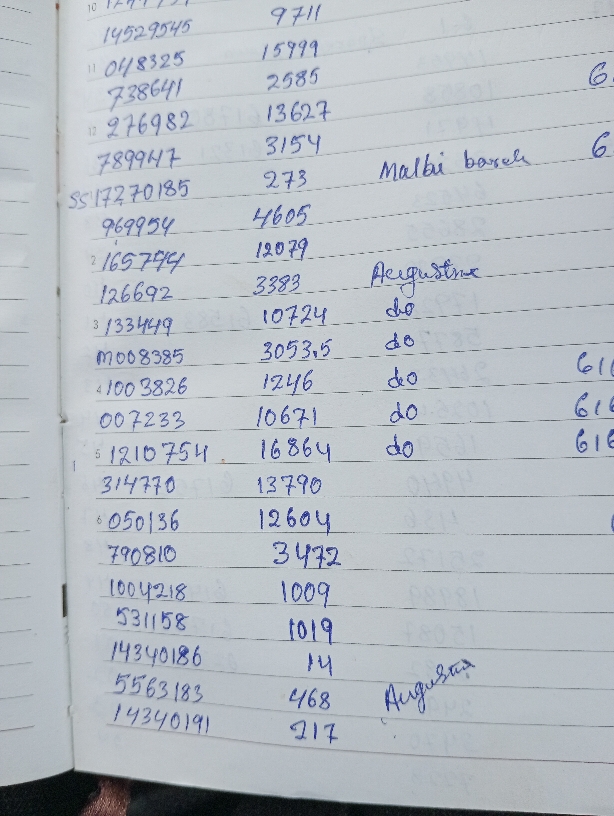 14529545 9711
048325 15999
738641 2585
276982 13627
789947 3154
SS17270185 273 Malbi barek
969954 4605
165744 12079
126692 3383 Augustine
133449 10724 do
M008385 3053.5 do
1003826 1246 do
007233 10671 do
1210754 16864 do
314770 13790
050136 12604
790810 3472
1004218 1009
531158 1019
14340186 14
5563183 468 Augustin
14340191 217